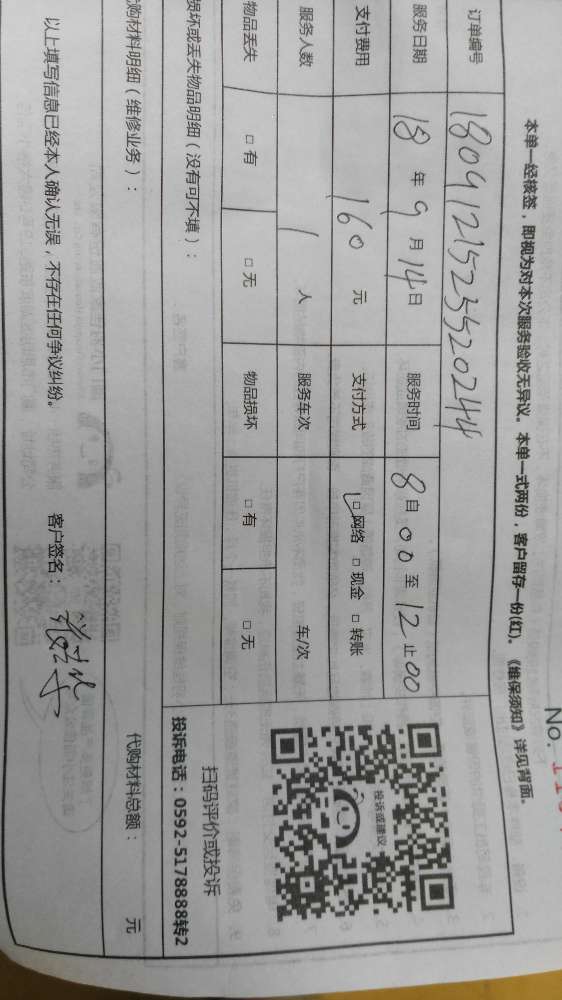 No.
本单一经核签，即视为对本次服务验收无异议。本单一式两份，客户留存一份(红)。《维保须知》详见背面。
订单编号 18091215235520244
服务日期 18 年 9 月 14 日 服务时间 8 自 00 至 12 止 00
支付费用 160 元 支付方式 □ 网络 □ 现金 □ 转账
服务人数 1 人 服务车次 车/次
物品丢失 □ 有 □ 无 物品损坏 □ 有 □ 无
损坏或丢失物品明细（没有可不填）：
投诉或建议
扫码评价或投诉
投诉电话：0592-5178888转2
购材料明细（维修业务）： 代购材料总额： 元
以上填写信息已经本人确认无误，不存在任何争议纠纷。 客户签名：